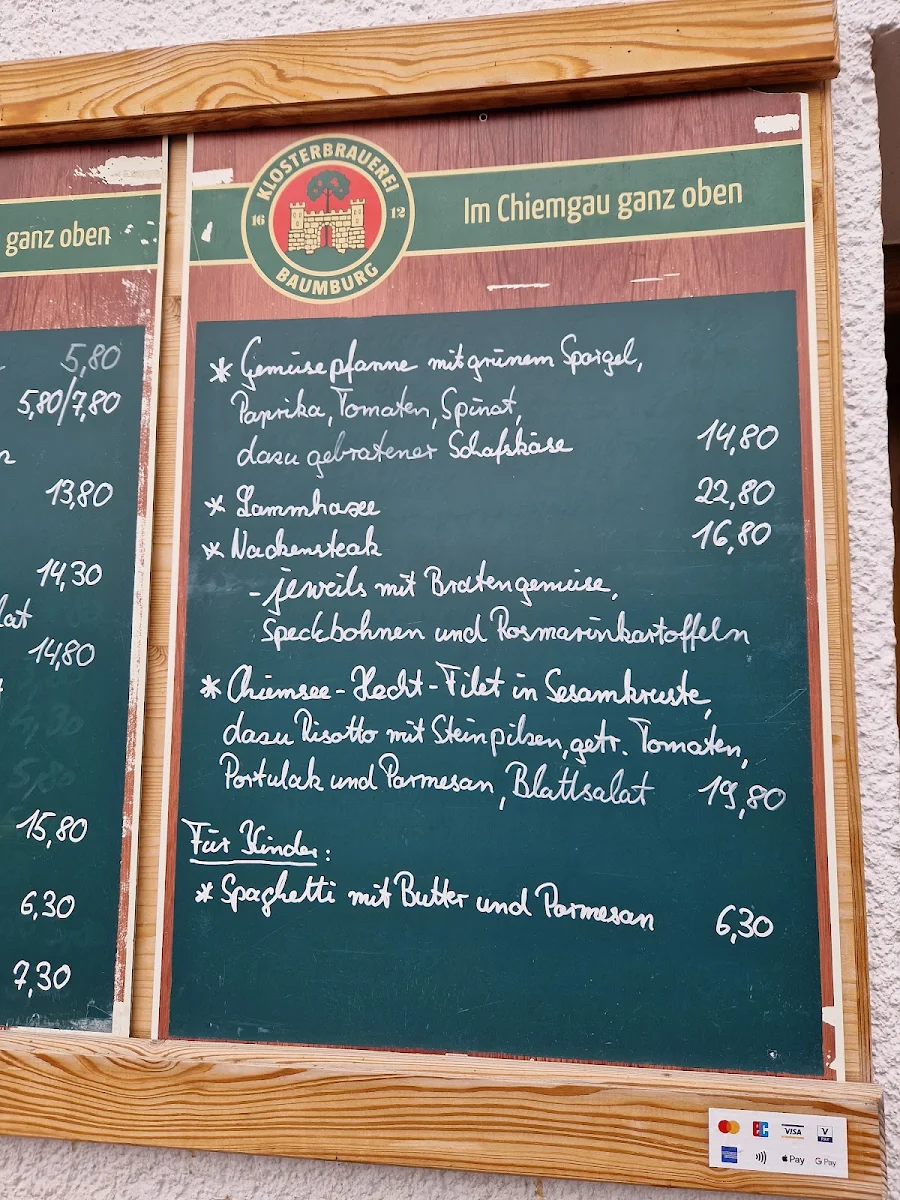 ganz oben
5,80
5,80/7,80
13,80
14,30
14,80
15,80
6,30
7,30
KLOSTERBRAUEREI
16 12
BAUMBURG
Im Chiemgau ganz oben
* Gemüsepfanne mit grünem Spargel,
Paprika, Tomaten, Spinat,
dazu gebratener Schafskäse 14,80
* Lammhaxe 22,80
* Nackensteak 16,80
- jeweils mit Bratengemüse,
Speckbohnen und Rosmarinkartoffeln
* Chiemsee-Hecht-Filet in Sesamkruste,
dazu Risotto mit Steinpilzen, getr. Tomaten,
Portulak und Parmesan, Blattsalat 19,80
Für Kinder:
* Spaghetti mit Butter und Parmesan 6,30
EC VISA V PAY
Pay G Pay